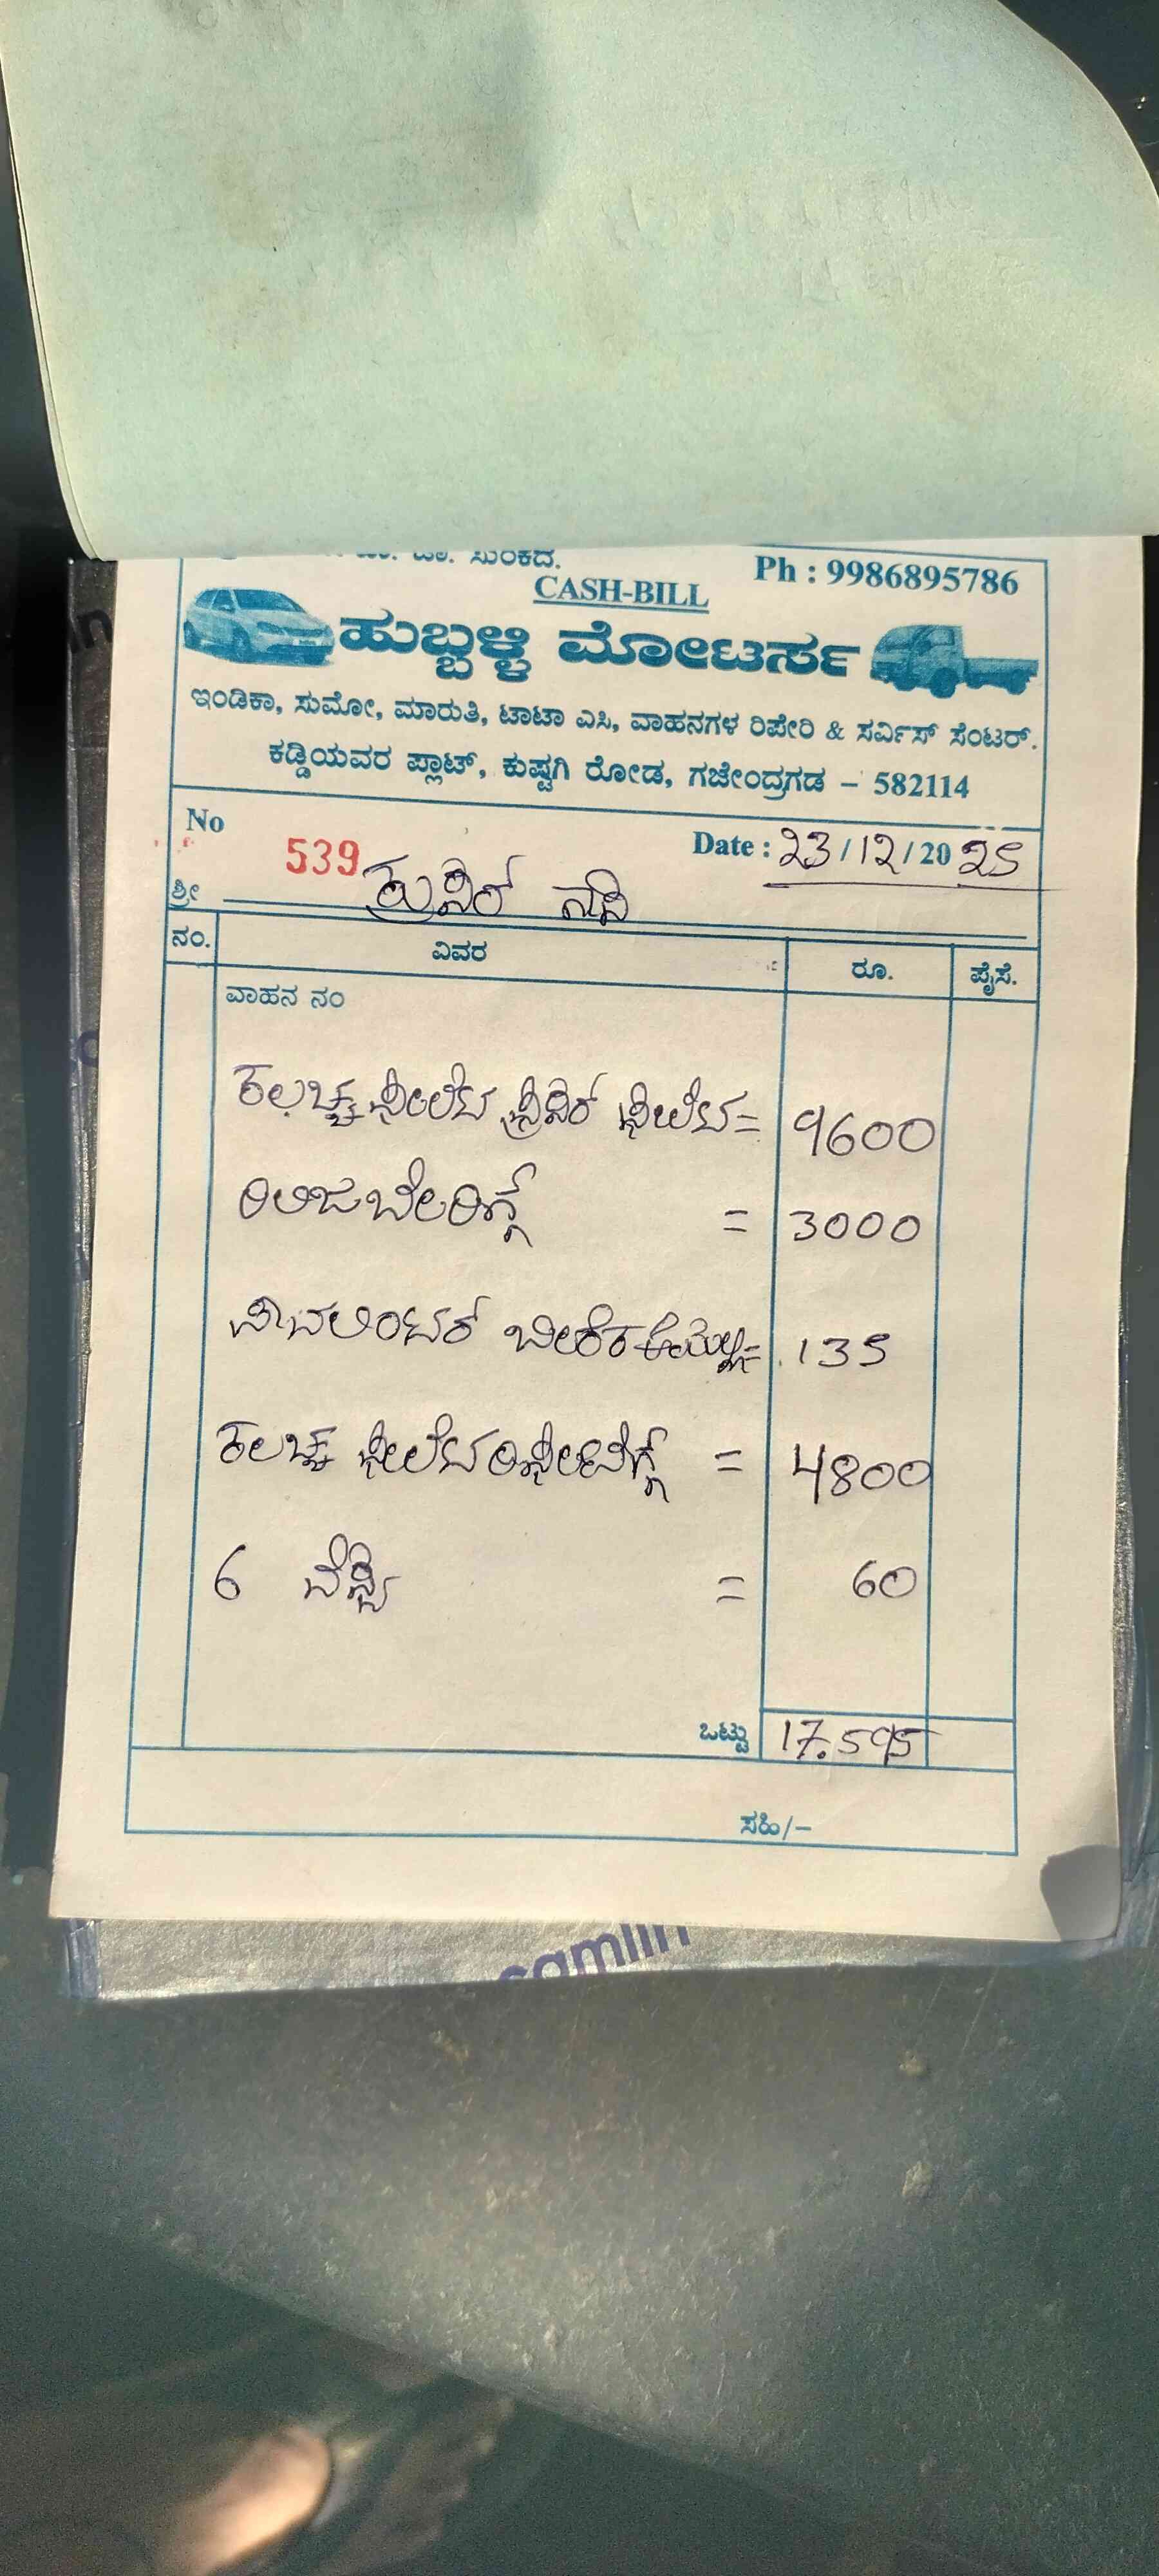 ಸುಂಕದ.
Ph : 9986895786
CASH-BILL
ಹುಬ್ಬಳ್ಳಿ ಮೋಟರ್ಸ
ಇಂಡಿಕಾ, ಸುಮೋ, ಮಾರುತಿ, ಟಾಟಾ ಎಸಿ, ವಾಹನಗಳ ರಿಪೇರಿ & ಸರ್ವಿಸ್ ಸೆಂಟರ್.
ಕಡ್ಡಿಯವರ ಪ್ಲಾಟ್, ಕುಷ್ಟಗಿ ರೋಡ, ಗಜೇಂದ್ರಗಡ – 582114
No 539 Date : 23/12/2025
ಶ್ರೀ
ನಂ. ವಿವರ ರೂ. ಪೈಸೆ.
ವಾಹನ ನಂ
ಕಲಚ್ಚ = 9600
ರಿಲಿಜಬೇರಿಂಗ್ = 3000
= 135
ಕಲಚ್ಚ = 4800
6 = 60
ಒಟ್ಟು 17.595
ಸಹಿ/–
camlin